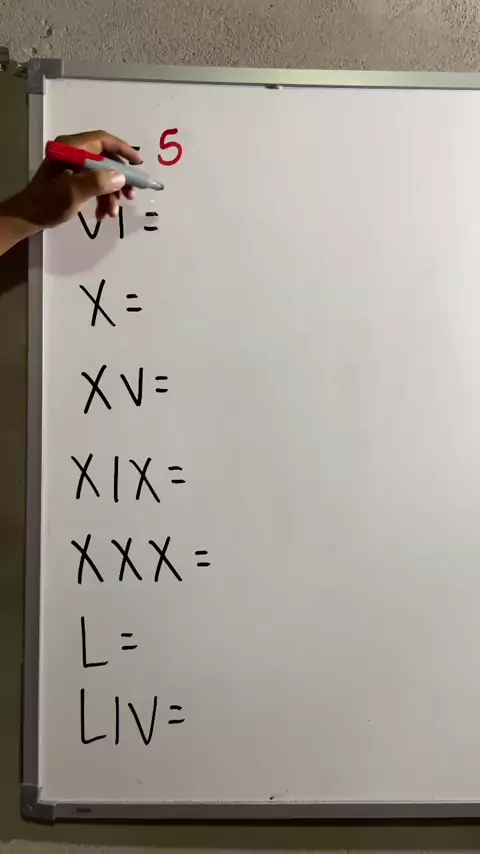 = 5
VI =
X =
XV =
XIX =
XXX =
L =
LIV =